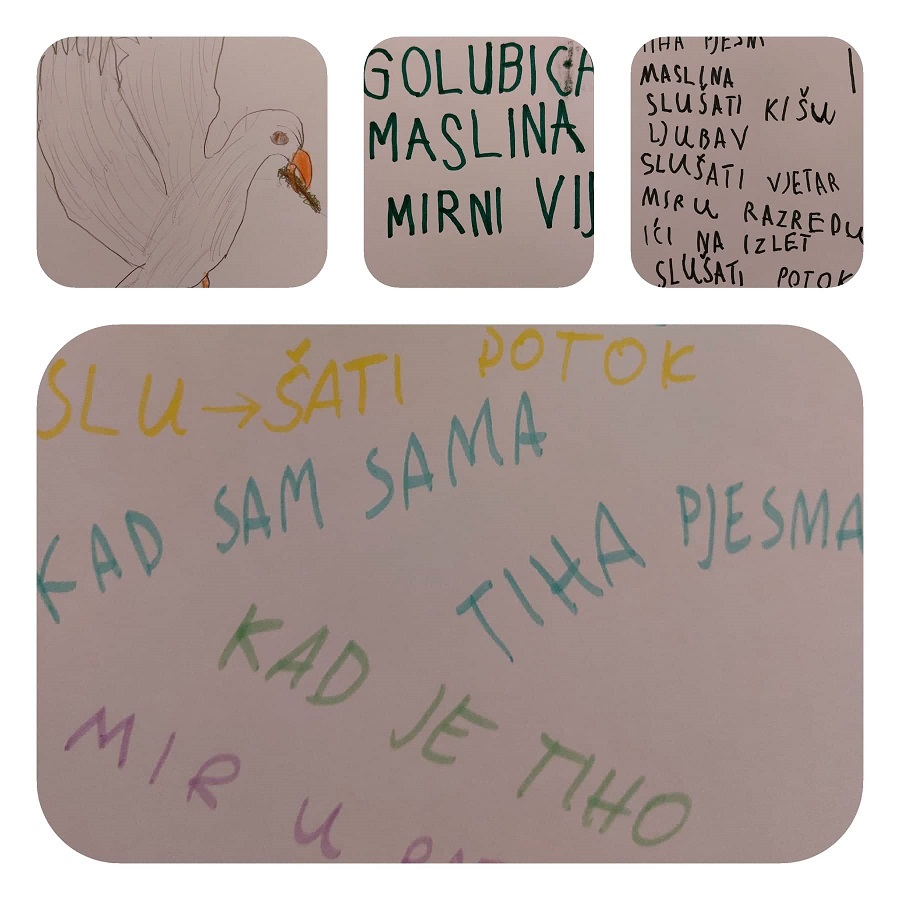 GOLUBICA
MASLINA
MIRNI VIJ
TIHA PJESM
MASLINA
SLUŠATI KIŠU
LJUBAV
SLUŠATI VJETAR
MIR U RAZREDU
IĆI NA IZLET
SLUŠATI POTOK
SLU→ŠATI POTOK
KAD SAM SAMA
TIHA PJESMA
KAD JE TIHO
MIR U